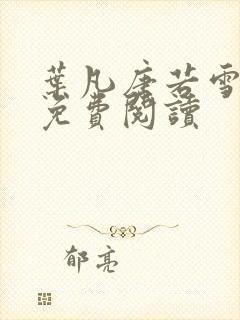 葉凡唐若雪
免費閱讀
郁亮